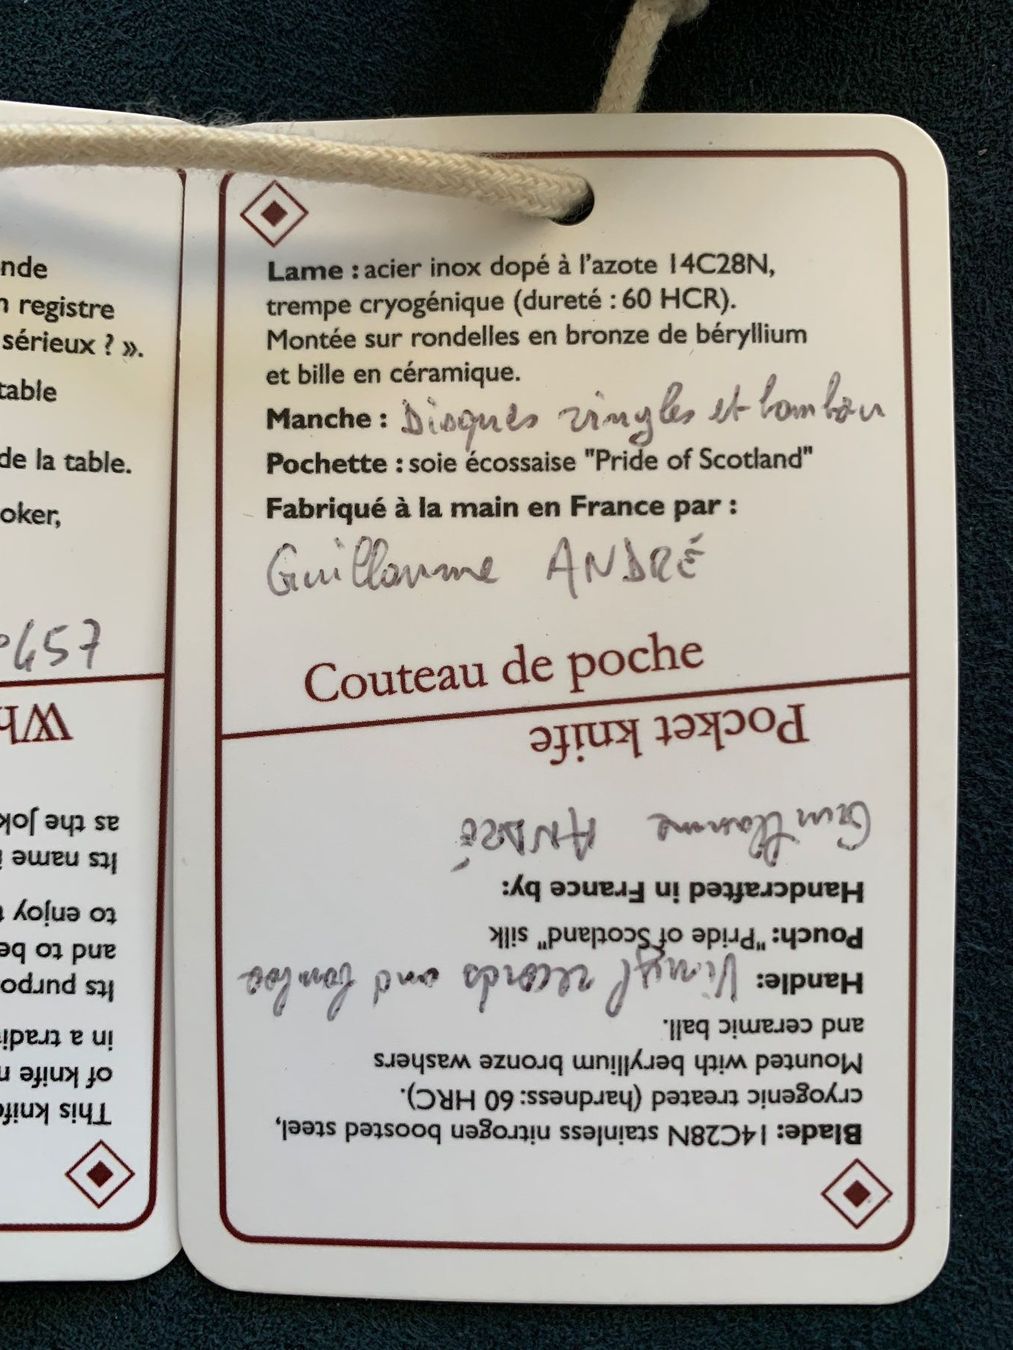 nde
registre
sérieux ? ».
table
de la table.
oker,
457
Lame : acier inox dopé à l'azote 14C28N,
trempe cryogénique (dureté : 60 HCR).
Montée sur rondelles en bronze de béryllium
et bille en céramique.
Manche : Disques vinyles et bambou
Pochette : soie écossaise "Pride of Scotland"
Fabriqué à la main en France par :
Guillaume ANDRÉ
Couteau de poche
Pocket knife
Blade: 14C28N stainless nitrogen boosted steel,
cryogenic treated (hardness: 60 HRC).
Mounted with beryllium bronze washers
and ceramic ball.
Handle: Vinyl records and bamboo
Pouch: "Pride of Scotland" silk
Handcrafted in France by:
Guillaume ANDRÉ
Wh
This knife
of knife
in a tradi
Its purpo
and to be
to enjoy
Its name
as the Jok